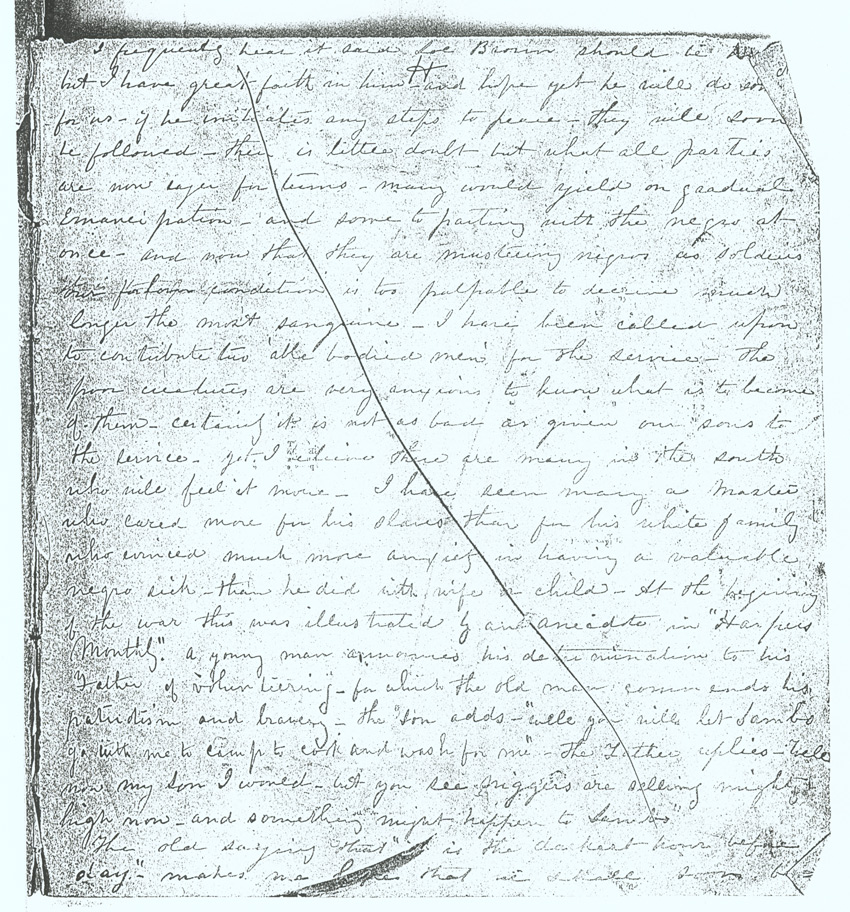 I frequently hear it said Joe Brown should be
but I have great faith in him - and hope yet he will do son
for us - if he initiates any steps to peace - they will soon
be followed - there is little doubt but what all parties
are now eager for terms - many would yield on gradual
Emancipation - and some to parting with the negro at
once - and now that they are mustering negros as soldiers
forlorn condition is too palpable to deceive much
longer the most sanguine - I have been called upon
to contribute two able bodied men for the service - the
poor creatures are very anxious to know what is to become
of them - certainly it is not as bad as given our sons to
the service - yet I believe there are many in the south
who will feel it more - I have seen many a Master
who cared more for his slaves than for his white family
who evinced much more anxiety in having a valuable
negro sick - than he did with wife or child - At the begining
of the war this was illustrated by an anecdote in "Harpers
Monthly." a young man announces his determination to his
Father of "volunteering" - for which the old man commends his
patriotism and bravery - the son adds - "well you will let Sambo
go with me to camp to cook and wash for me" - the Father replies - Well
now my son I would - but you see niggers are selling mighty
high now - and something might happen to Sambo"
The old saying "that it is the darkest hour before
day" - makes me hope that we shall soon be